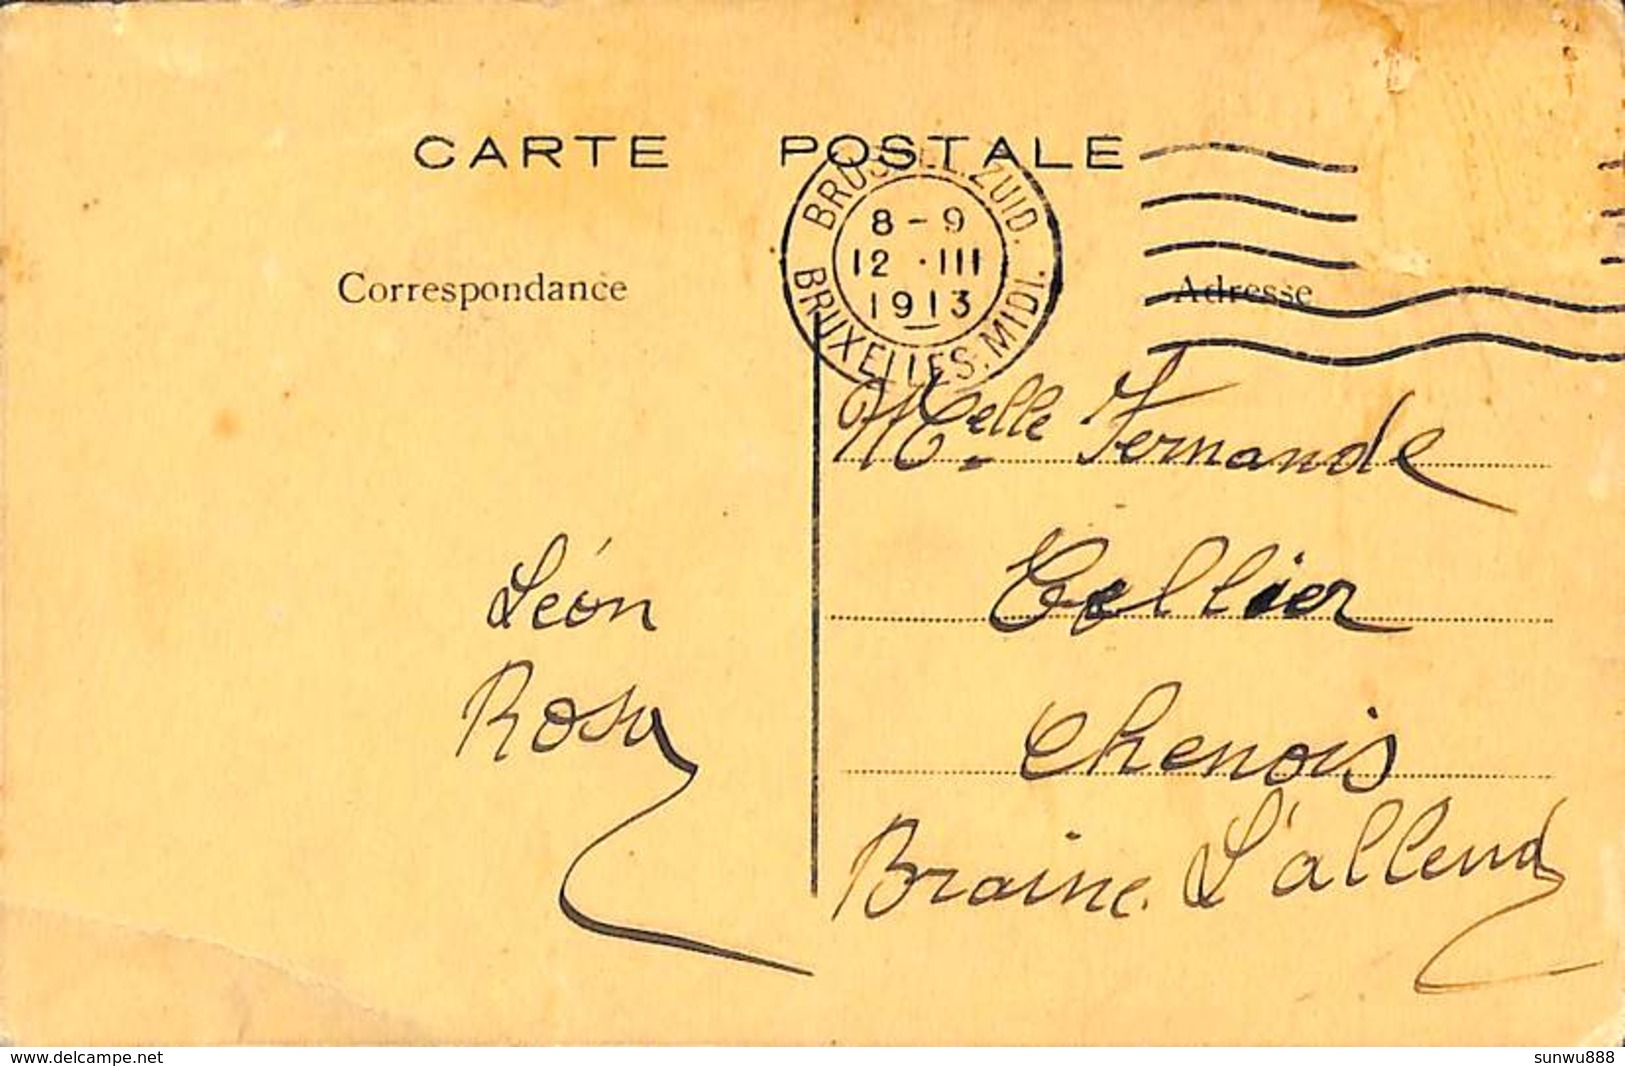 CARTE POSTALE
BRUSSEL.ZUID.
8 - 9
12 · III
1913
BRUXELLES.MIDI.
Correspondance
Adresse
Melle Fernande
Léon
Rosa
Chenois
Braine L'allend
delcampe.net
sunwu888